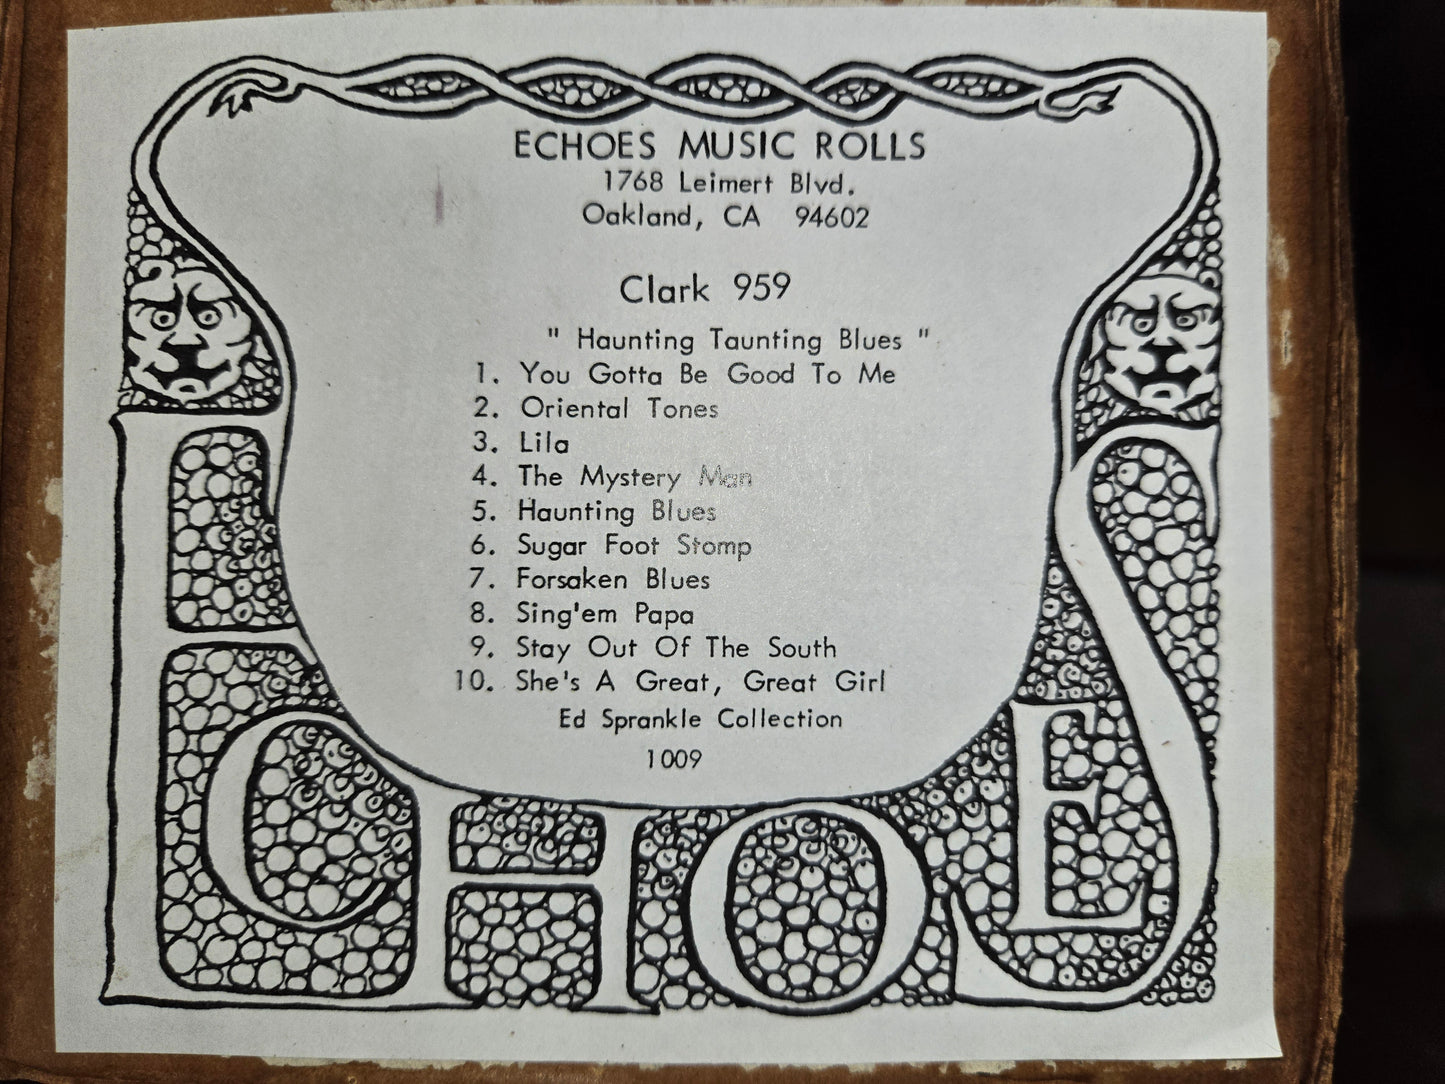 ECHOES MUSIC ROLLS
1768 Leimert Blvd.
Oakland, CA 94602
Clark 959
" Haunting Taunting Blues "
1. You Gotta Be Good To Me
2. Oriental Tones
3. Lila
4. The Mystery Man
5. Haunting Blues
6. Sugar Foot Stomp
7. Forsaken Blues
8. Sing'em Papa
9. Stay Out Of The South
10. She's A Great, Great Girl
Ed Sprankle Collection
1009
ECHOES